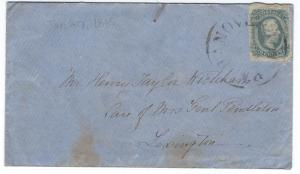 HANOVER
Va
Mr Henry Taylor Wickham
Care of Mrs Genl Pendleton
Lexington